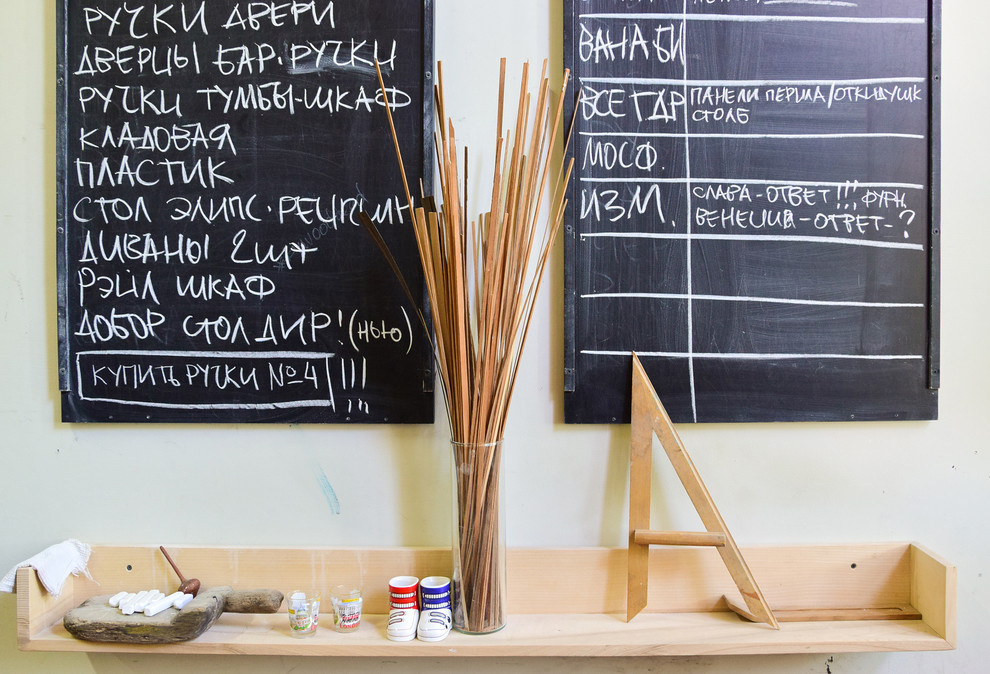 РУЧКИ ДВЕРИ
ДВЕРЦЫ БАР. РУЧКИ
РУЧКИ ТУМБЫ-ШКАФ
КЛАДОВАЯ
ПЛАСТИК
СТОЛ ЭЛИПС.
ДИВАНЫ 2шт
РЭЙЛ ШКАФ
ДОБОР СТОЛ ДИР! (НЬЮ)
КУПИТЬ РУЧКИ №4 !!!
ВАНА БИ
ВСЕ ГДР ПАНЕЛИ ПЕРИЛА/ОТКИДУШК
СТОЛБ
МОСФ.
ИЗМ. СЛАВА-ОТВЕТ!!! ФУРН.
ВЕНЕЦИЯ-ОТВЕТ-?